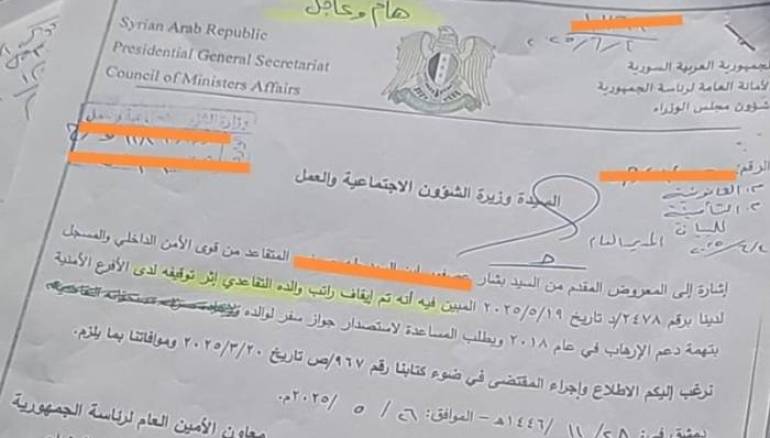 هام وعاجل
Syrian Arab Republic
Presidential General Secretariat
Council of Ministers Affairs
الجمهورية العربية السورية
الأمانة العامة لرئاسة الجمهورية
شؤون مجلس الوزراء
الرقم:
القانونية
التأمينية
المدير العام
السيدة وزيرة الشؤون الاجتماعية والعمل
إشارة إلى المعروض المقدم من السيد بشار المتقاعد من قوى الأمن الداخلي والمسجل
لدينا برقم ٢٤٧٨/د تاريخ ٢٠٢٥/٥/١٩ المبين فيه أنه تم إيقاف راتب والده التقاعدي إثر توقيفه لدى الأفرع الأمنية
بتهمة دعم الإرهاب في عام ٢٠١٨ ويطلب المساعدة لاستصدار جواز سفر لوالده
نرغب إليكم الاطلاع وإجراء المقتضى في ضوء كتابنا رقم ٩٦٧/ص تاريخ ٢٠٢٥/٣/٢٠ وموافاتنا بما يلزم.
دمشق في ٢٨/ ١١ /١٤٤٦هـ – الموافق: ٢٦ / ٥ /٢٠٢٥م.
معاون الأمين العام لرئاسة الجمهورية